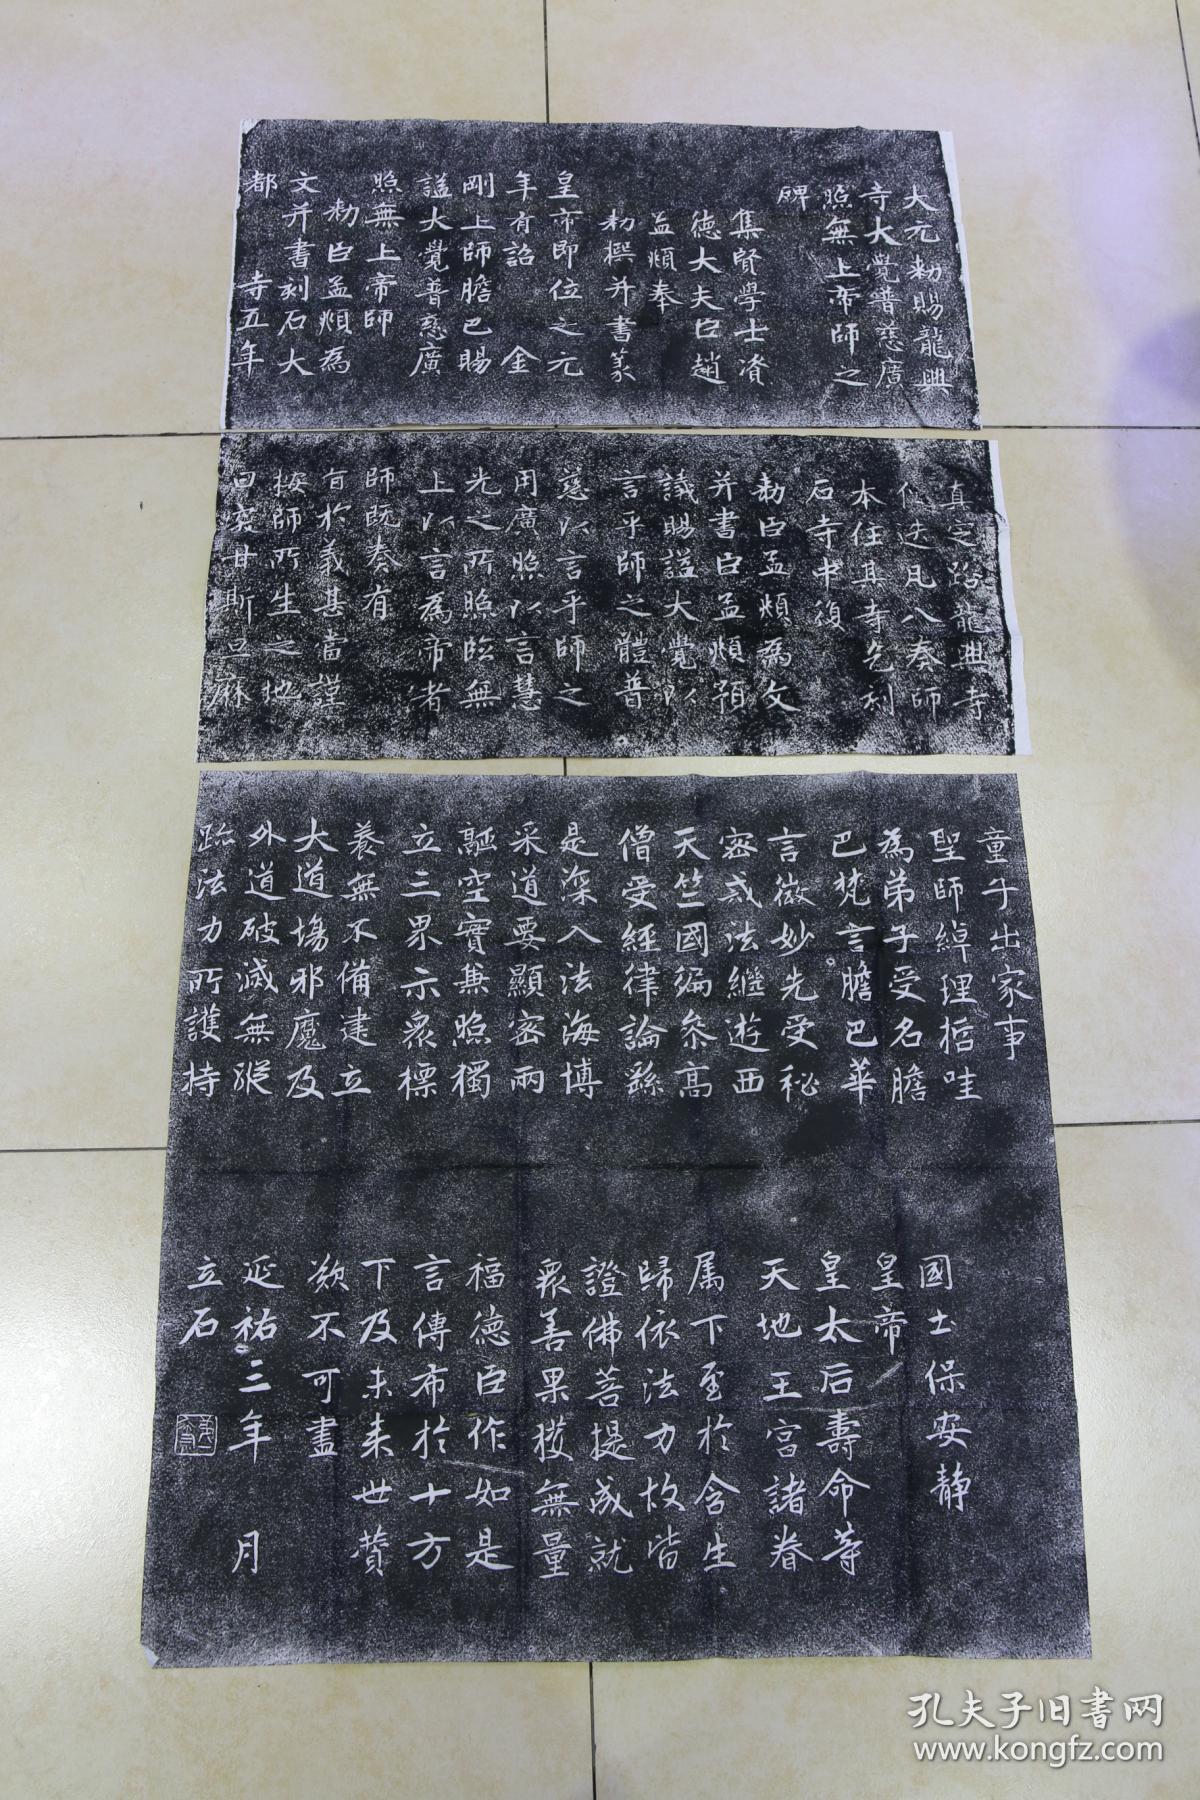 大元勅賜龍興
寺大覺普慈廣
照無上帝師之
碑
集賢學士資
德大夫臣趙
孟頫奉
勅撰并書篆
皇帝即位之元
年有詔金
剛上師膽巴賜
謚大覺普慈廣
照無上帝師
勅臣孟頫為
文并書刻石大
都寺五年
真定路龍興寺
僧迭凡八奏師
本住其寺乞刻
石寺中復
勅臣孟頫為文
并書臣孟頫預
議賜謚大覺以
言乎師之體普
慈以言乎師之
用廣照以言慧
光之所照臨無
上以言為帝者
師既奏有
旨於義甚當謹
按師所生之地
曰突甘斯旦麻
童子出家事
聖師綽理哲哇
為弟子受名膽
巴梵言膽巴華
言微妙先受秘
密戒法繼遊西
天竺國徧叅高
僧受經律論繇
是深入法海博
采道要顯密兩
融空實兼照獨
立三界示眾標
養無不備建立
大道場邪魔及
外道破滅無踪
跡法力所護持
國土保安静
皇帝
皇太后壽命等
天地王宫諸眷
属下至於含生
歸依法力故皆
證佛菩提成就
眾善果獲無量
福德臣作如是
言傳布於十方
下及未来世贊
歎不可盡
延祐三年 月
立石
孔夫子旧书网
www.kongfz.com